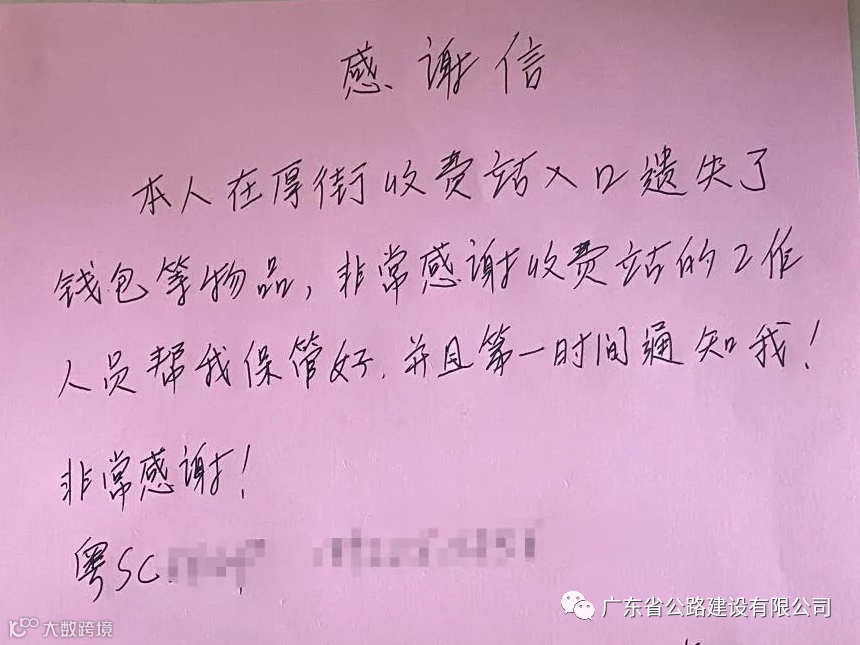 感谢信
本人在厚街收费站入口遗失了
钱包等物品，非常感谢收费站的工作
人员帮我保管好，并且第一时间通知我！
非常感谢！
粤SC
广东省公路建设有限公司
大数跨境